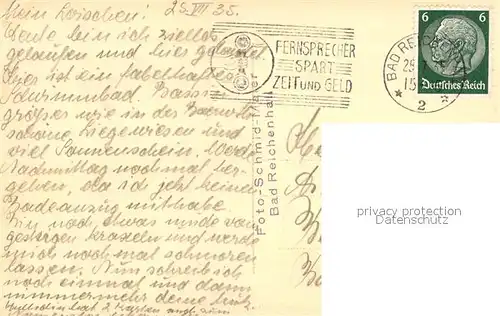 Mein Röschen! 25. VII 35.
Heute bin ich ziellos
gelaufen und hier gelandet.
Hier ist ein fabelhaftes
Schwimmbad. Bassin
größer wie in der
schöne Liegewiesen und
viel Sonnenschein. Werde
Nachmittag nochmal her-
gehen, da ich jetzt keinen
Badeanzug mithabe.
Bin noch etwas müde vom
gestrigen Kraxeln und werde
mich noch mal schmoren
lassen. Nun schreib ich
noch einmal und dann
nimmermehr deine
hat 2 Karten
FERNSPRECHER
SPART
ZEIT UND GELD
BAD RE
15
* 2 *
6 6
Deutsches Reich
Foto-Schmid-Maier
Bad Reichenhall
privacy protection
Datenschutz